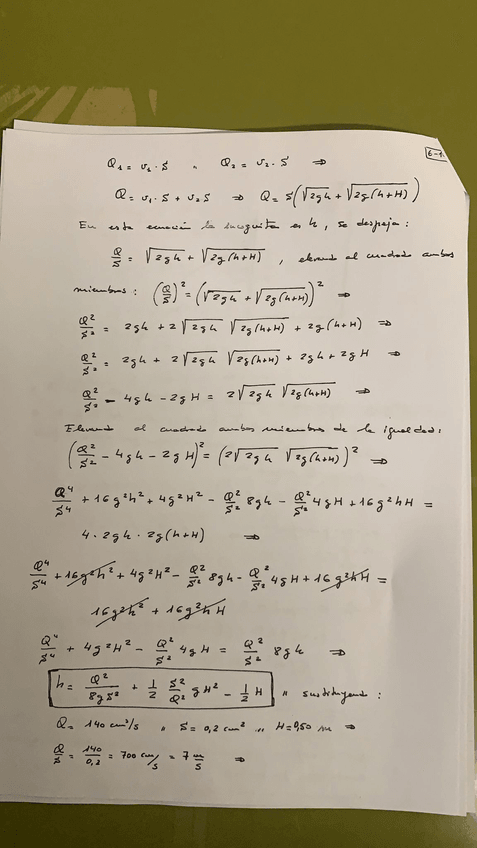 6-1
Q₁ = v₁ · S „ Q₂ = v₂ · S ⇒
Q = v₁ · S + v₂ S ⇒ Q = S(√2gh + √2g(h+H))
En esta ecuación la incognita es h, se despeja:
Q/S = √2gh + √2g(h+H) , elevando al cuadrado ambos
miembros: (Q/S)² = (√2gh + √2g(h+H))² ⇒
Q²/S² = 2gh + 2√2gh √2g(h+H) + 2g(h+H) ⇒
Q²/S² = 2gh + 2√2gh √2g(h+H) + 2gh + 2gH ⇒
Q²/S² - 4gh - 2gH = 2√2gh √2g(h+H) ⇒
Elevando al cuadrado ambos miembros de la igualdad:
(Q²/S² - 4gh - 2gH)² = (2√2gh √2g(h+H))² ⇒
Q⁴/S⁴ + 16g²h² + 4g²H² - Q²/S² 8gh - Q²/S² 4gH + 16g²hH =
4 · 2gh · 2g(h+H) ⇒
Q⁴/S⁴ + 16g²h² + 4g²H² - Q²/S² 8gh - Q²/S² 4gH + 16g²hH =
16g²h² + 16g²hH
Q⁴/S⁴ + 4g²H² - Q²/S² 4gH = Q²/S² 8gh ⇒
h = Q²/8gS² + 1/2 S²/Q² gH² - 1/2 H „ sustituyendo:
Q = 140 cm³/s „ S = 0,2 cm² „ H = 0,50 m ⇒
Q/S = 140/0,2 = 700 cm/s = 7 m/s ⇒